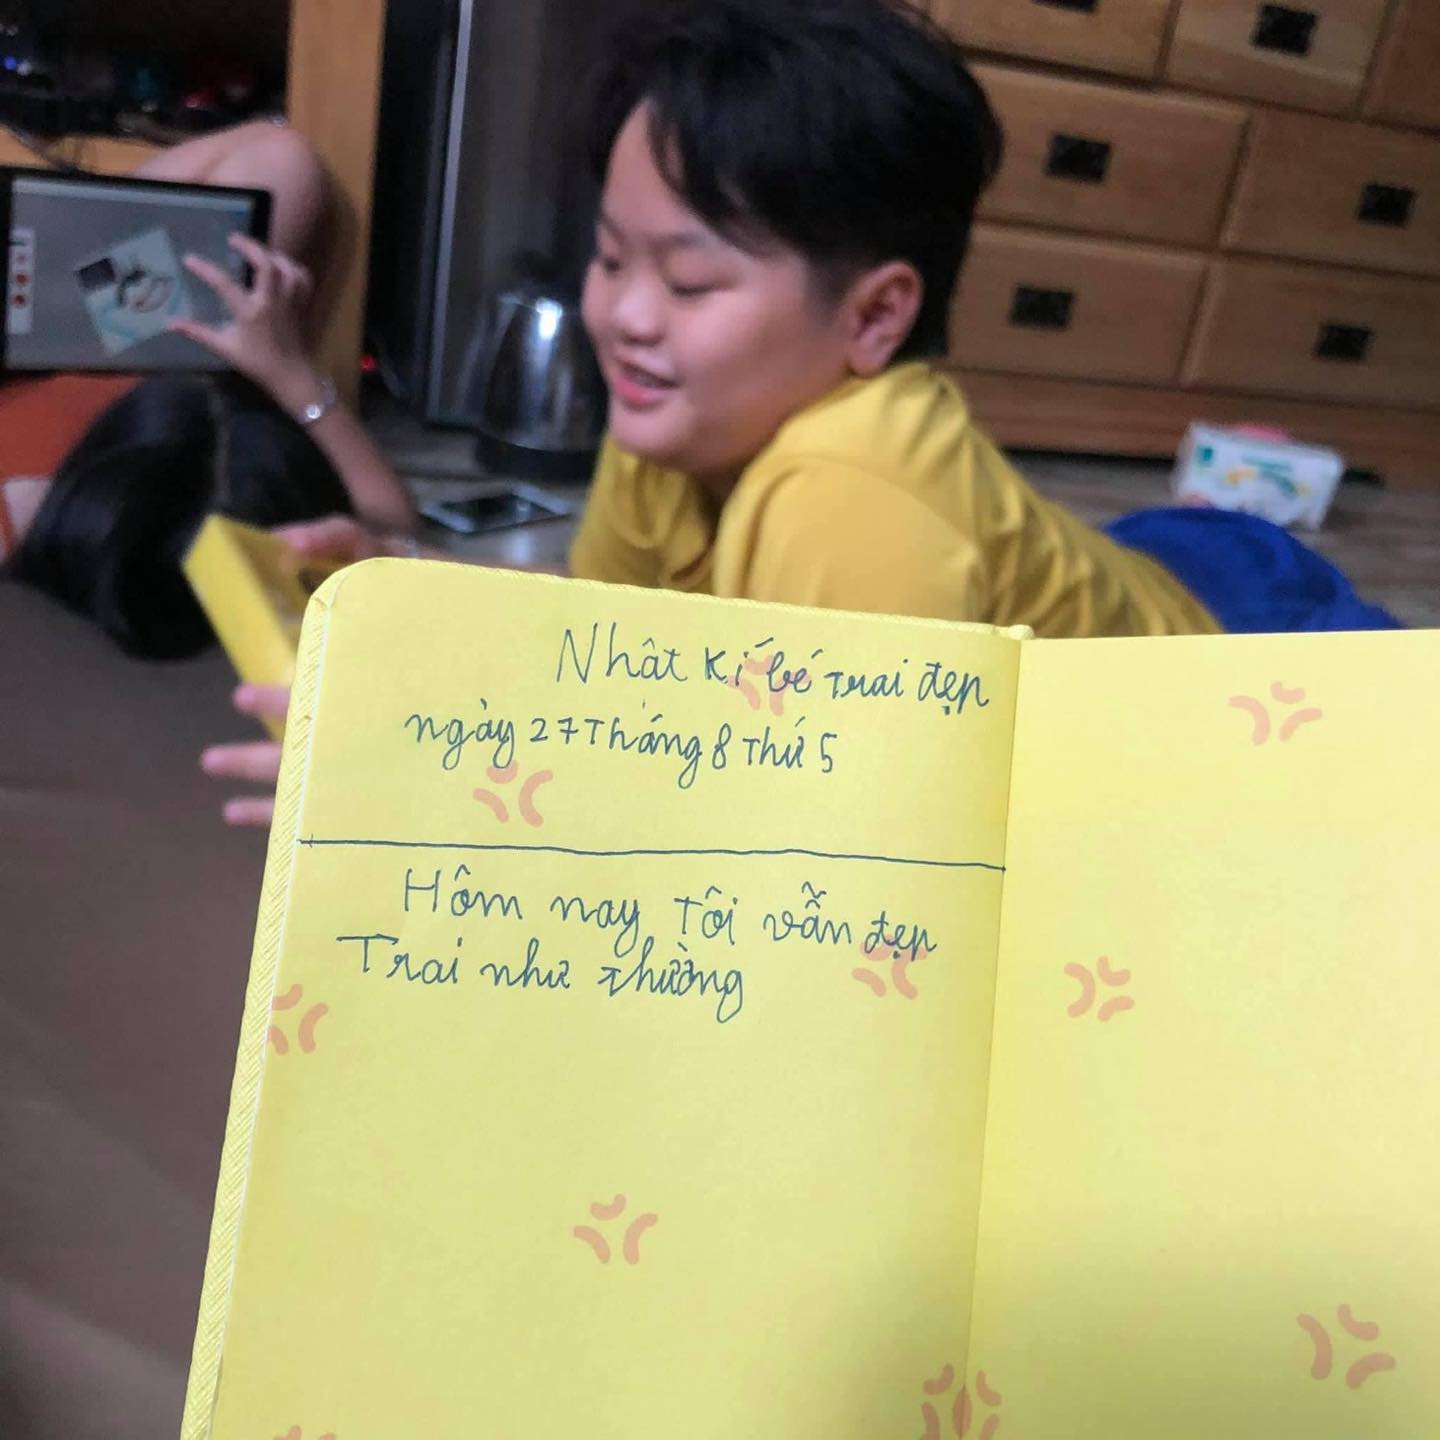 Nhât kí bé trai đẹp
ngày 27 Tháng 8 Thứ 5
Hôm nay Tôi vẫn đẹp
Trai như thường